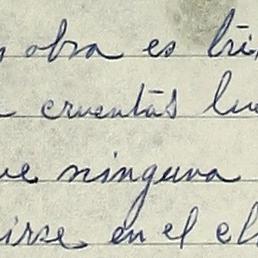 obra es bri
cruentas lu
ue ninguna
irse en el el